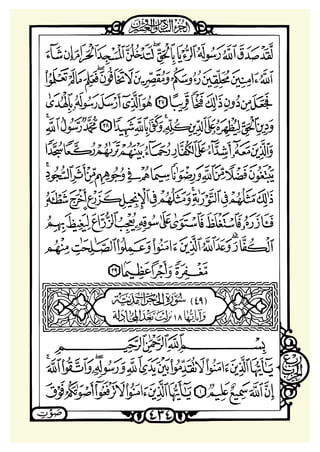 الجزء السادس والعشرون
لَّقَدْ صَدَقَ اللَّهُ رَسُولَهُ الرُّءْيَا بِالْحَقِّ لَتَدْخُلُنَّ الْمَسْجِدَ الْحَرَامَ إِن شَآءَ
اللَّهُ ءَامِنِينَ مُحَلِّقِينَ رُءُوسَكُمْ وَمُقَصِّرِينَ لَا تَخَافُونَ فَعَلِمَ مَا لَمْ تَعْلَمُوا
فَجَعَلَ مِن دُونِ ذَٰلِكَ فَتْحًا قَرِيبًا ٢٧ هُوَ الَّذِى أَرْسَلَ رَسُولَهُ بِالْهُدَىٰ
وَدِينِ الْحَقِّ لِيُظْهِرَهُ عَلَى الدِّينِ كُلِّهِ وَكَفَىٰ بِاللَّهِ شَهِيدًا ٢٨ مُّحَمَّدٌ رَّسُولُ اللَّهِ
وَالَّذِينَ مَعَهُ أَشِدَّآءُ عَلَى الْكُفَّارِ رُحَمَآءُ بَيْنَهُمْ تَرَىٰهُمْ رُكَّعًا سُجَّدًا
يَبْتَغُونَ فَضْلًا مِّنَ اللَّهِ وَرِضْوَٰنًا سِيمَاهُمْ فِى وُجُوهِهِم مِّنْ أَثَرِ السُّجُودِ
ذَٰلِكَ مَثَلُهُمْ فِى التَّوْرَىٰةِ وَمَثَلُهُمْ فِى الْإِنجِيلِ كَزَرْعٍ أَخْرَجَ شَطْـَٔهُ
فَـَٔازَرَهُ فَاسْتَغْلَظَ فَاسْتَوَىٰ عَلَىٰ سُوقِهِ يُعْجِبُ الزُّرَّاعَ لِيَغِيظَ بِهِمُ
الْكُفَّارَ وَعَدَ اللَّهُ الَّذِينَ ءَامَنُوا وَعَمِلُوا الصَّٰلِحَٰتِ مِنْهُم
مَّغْفِرَةً وَأَجْرًا عَظِيمًا ٢٩
(٤٩) سُورَةُ الْحُجُرَاتِ مَدَنِيَّة
وَآيَاتُهَا ١٨ نَزَلَتْ بَعْدَ الْمُجَادلة
بِسْمِ اللَّهِ الرَّحْمَٰنِ الرَّحِيمِ
يَٰٓأَيُّهَا الَّذِينَ ءَامَنُوا لَا تُقَدِّمُوا بَيْنَ يَدَىِ اللَّهِ وَرَسُولِهِ وَاتَّقُوا اللَّهَ
إِنَّ اللَّهَ سَمِيعٌ عَلِيمٌ ١ يَٰٓأَيُّهَا الَّذِينَ ءَامَنُوا لَا تَرْفَعُوٓا أَصْوَٰتَكُمْ فَوْقَ
٤٣٤
صَوْتِ